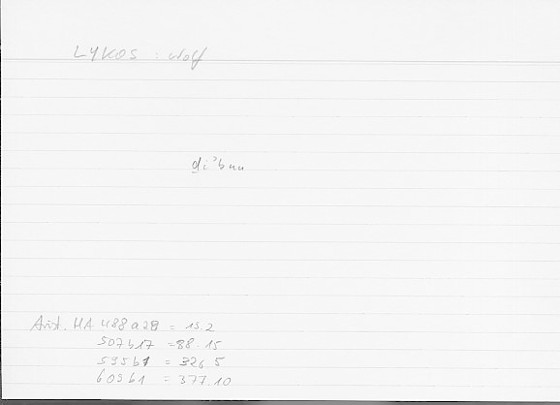 LYKOS : Wolf
Arist. HA 488a28 = 15.2
507b17 = 88.15
595b1 = 326.5
605b1 = 377.10